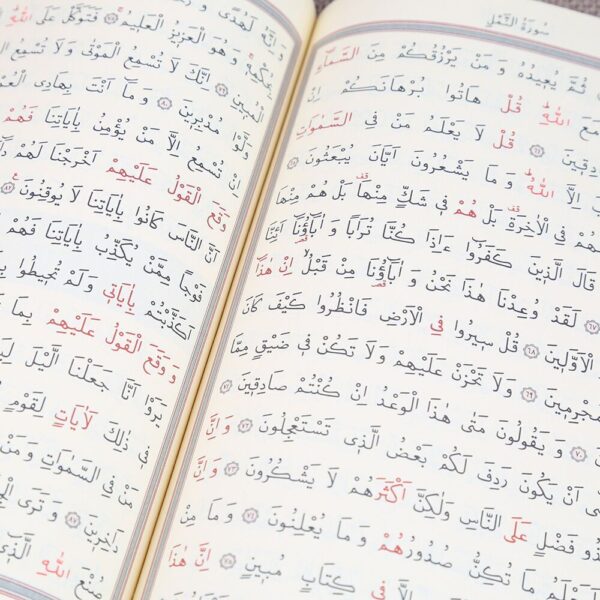 سُورَةُ النَّمْلِ
ثُمَّ يُعِيدُهُ وَ مَنْ يَرْزُقُكُمْ مِنَ السَّمَاءِ
مَعَ اللّٰهِ قُلْ هَاتُوا بُرْهَانَكُمْ اِنْ
قُلْ لَا يَعْلَمُ مَنْ فِي السَّمٰوَاتِ ﴿٦٤﴾
اِلَّا اللّٰهُ وَ مَا يَشْعُرُونَ اَيَّانَ يُبْعَثُونَ ﴿٦٥﴾
فِي الْاٰخِرَةِ بَلْ هُمْ فِي شَكٍّ مِنْهَا بَلْ هُمْ مِنْهَا
قَالَ الَّذِينَ كَفَرُوا ءَاِذَا كُنَّا تُرَابًا وَ اٰبَاؤُنَا اَئِنَّا
لَقَدْ وُعِدْنَا هٰذَا نَحْنُ وَ اٰبَاؤُنَا مِنْ قَبْلُ اِنْ هٰذَا ﴿٦٧﴾
الْاَوَّلِينَ ﴿٦٨﴾ قُلْ سِيرُوا فِي الْاَرْضِ فَانْظُرُوا كَيْفَ كَانَ
﴿٦٩﴾ وَلَا تَحْزَنْ عَلَيْهِمْ وَلَا تَكُنْ فِي ضَيْقٍ مِمَّا
﴿٧٠﴾ وَ يَقُولُونَ مَتٰى هٰذَا الْوَعْدُ اِنْ كُنْتُمْ صَادِقِينَ ﴿٧١﴾
اَنْ يَكُونَ رَدِفَ لَكُمْ بَعْضُ الَّذِي تَسْتَعْجِلُونَ ﴿٧٢﴾ وَ اِنَّ
فَضْلٍ عَلَى النَّاسِ وَلٰكِنَّ اَكْثَرَهُمْ لَا يَشْكُرُونَ ﴿٧٣﴾ وَ اِنَّ
مَا تُكِنُّ صُدُورُهُمْ وَ مَا يُعْلِنُونَ ﴿٧٤﴾ وَ مَا مِنْ
اِلَّا فِي كِتَابٍ مُبِينٍ ﴿٧٥﴾ اِنَّ هٰذَا
وَ اِنَّهُ لَهُدًى وَ
وَ هُوَ الْعَزِيزُ الْعَلِيمُ ﴿٧٨﴾ فَتَوَكَّلْ عَلَى اللّٰهِ
الْمُبِينِ ﴿٧٩﴾ اِنَّكَ لَا تُسْمِعُ الْمَوْتٰى وَلَا تُسْمِعُ
وَلَّوْا مُدْبِرِينَ ﴿٨٠﴾ وَ مَا اَنْتَ بِهَادِي الْعُمْيِ
اِنْ تُسْمِعُ اِلَّا مَنْ يُؤْمِنُ بِاٰيَاتِنَا فَهُمْ
وَقَعَ الْقَوْلُ عَلَيْهِمْ اَخْرَجْنَا لَهُمْ
اَنَّ النَّاسَ كَانُوا بِاٰيَاتِنَا لَا يُوقِنُونَ ﴿٨٢﴾
فَوْجًا مِمَّنْ يُكَذِّبُ بِاٰيَاتِنَا فَهُمْ
اَكَذَّبْتُمْ بِاٰيَاتِي وَلَمْ تُحِيطُوا
وَ وَقَعَ الْقَوْلُ عَلَيْهِمْ بِمَا
يَرَوْا اَنَّا جَعَلْنَا الَّيْلَ
فِي ذٰلِكَ لَاٰيَاتٍ لِقَوْمٍ
مَنْ فِي السَّمٰوَاتِ وَ مَنْ
دَاخِرِينَ ﴿٨٧﴾ وَ تَرَى
صُنْعَ اللّٰهِ الَّذِي